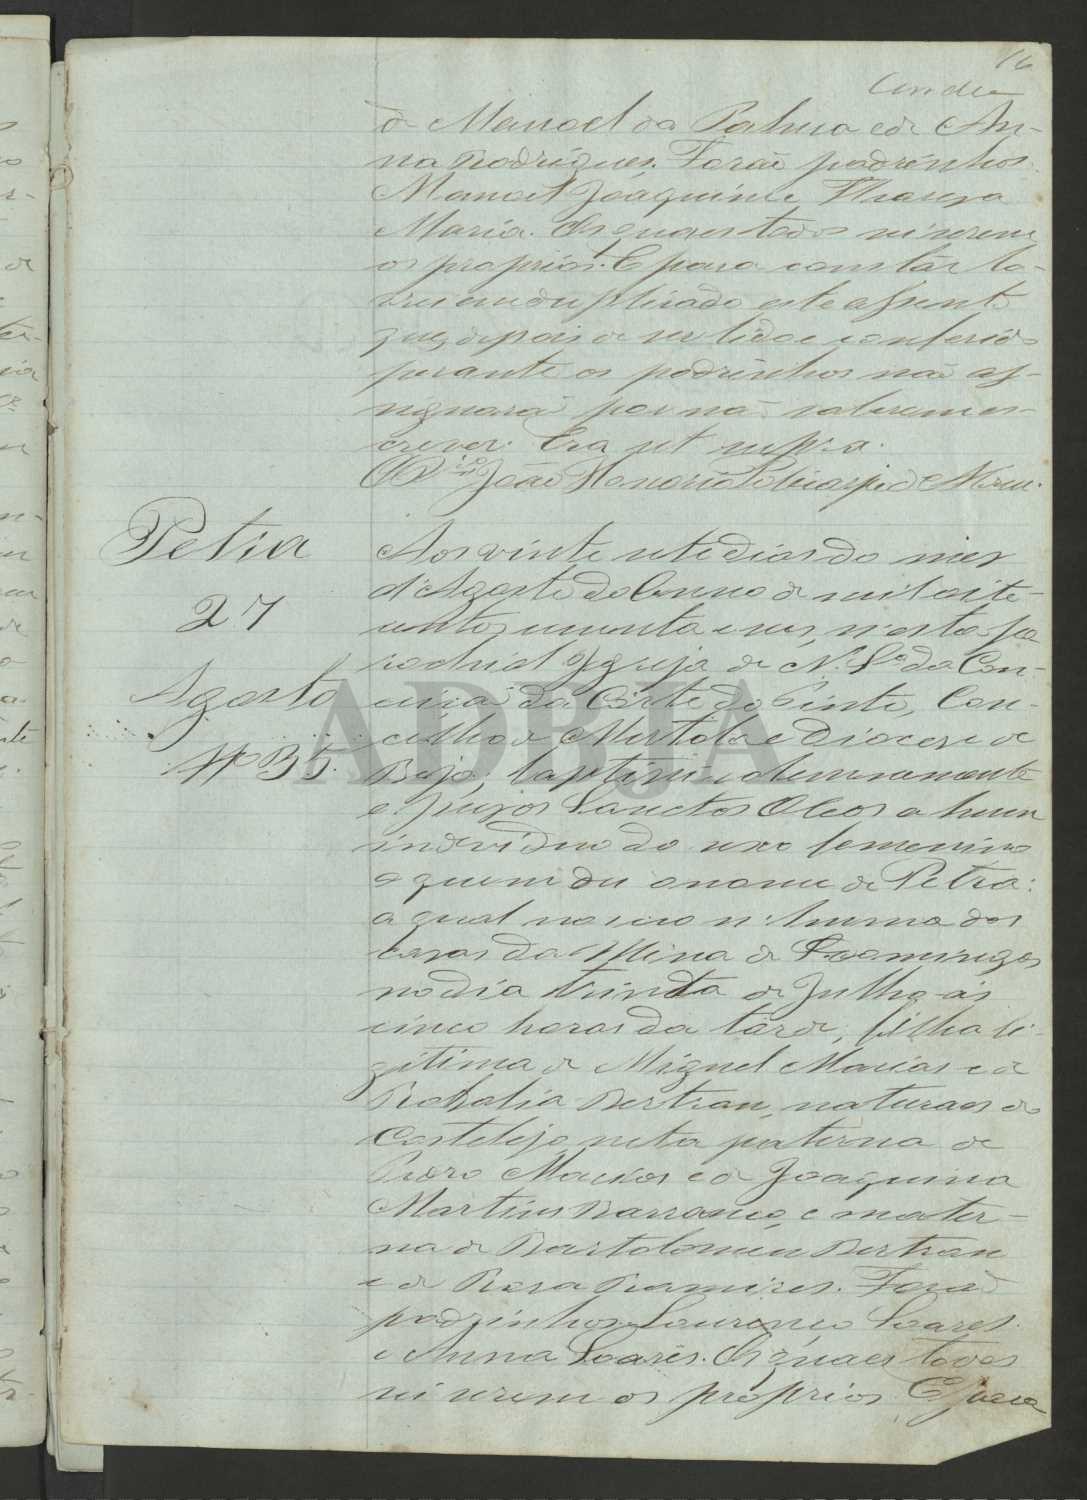 16
de Manoel da Palma e de An-
na Rodrigues. Forão padrinhos
Manoel Joaquim e Thereza
Maria. Os quaes todos sei serem
os proprios. E para constar la-
vrei em duplicado este assento
que, depois de ser lido e conferido
perante os padrinhos não as-
signarão por não saberem es-
crever. Era ut supra.
João Honorio Policarpo
Petra
27
Agosto
Nº 35.
Aos vinte sete dias do mez
d'Agosto do Anno de mil oite-
centos e seis, n'esta Pa
rochial Igreja de N. Sª da Con-
ceição da Côrte do Pinto, Con-
celho de Mertola e Diocese de
Beja, baptizei solemnemente
e puz os Sanctos Oleos a hum
individuo do sexo femenino
a quem dei o nome de Petra:
a qual nasceo n'huma das
casas da Mina de S. Domingos
no dia trinta de Julho ás
cinco horas da tarde, filha le-
gitima de Miguel Macias e de
Bertran, naturaes de
Castelejo neta paterna de
Pedro Macias e de Joaquina
Martins Barranco, e mater-
na de Bartolomeu Bertran
e de Rosa Ramires. Forão
padrinhos Lourenço Soares
e Anna Soares. Os quaes todos
sei serem os proprios. E para
ADBJA